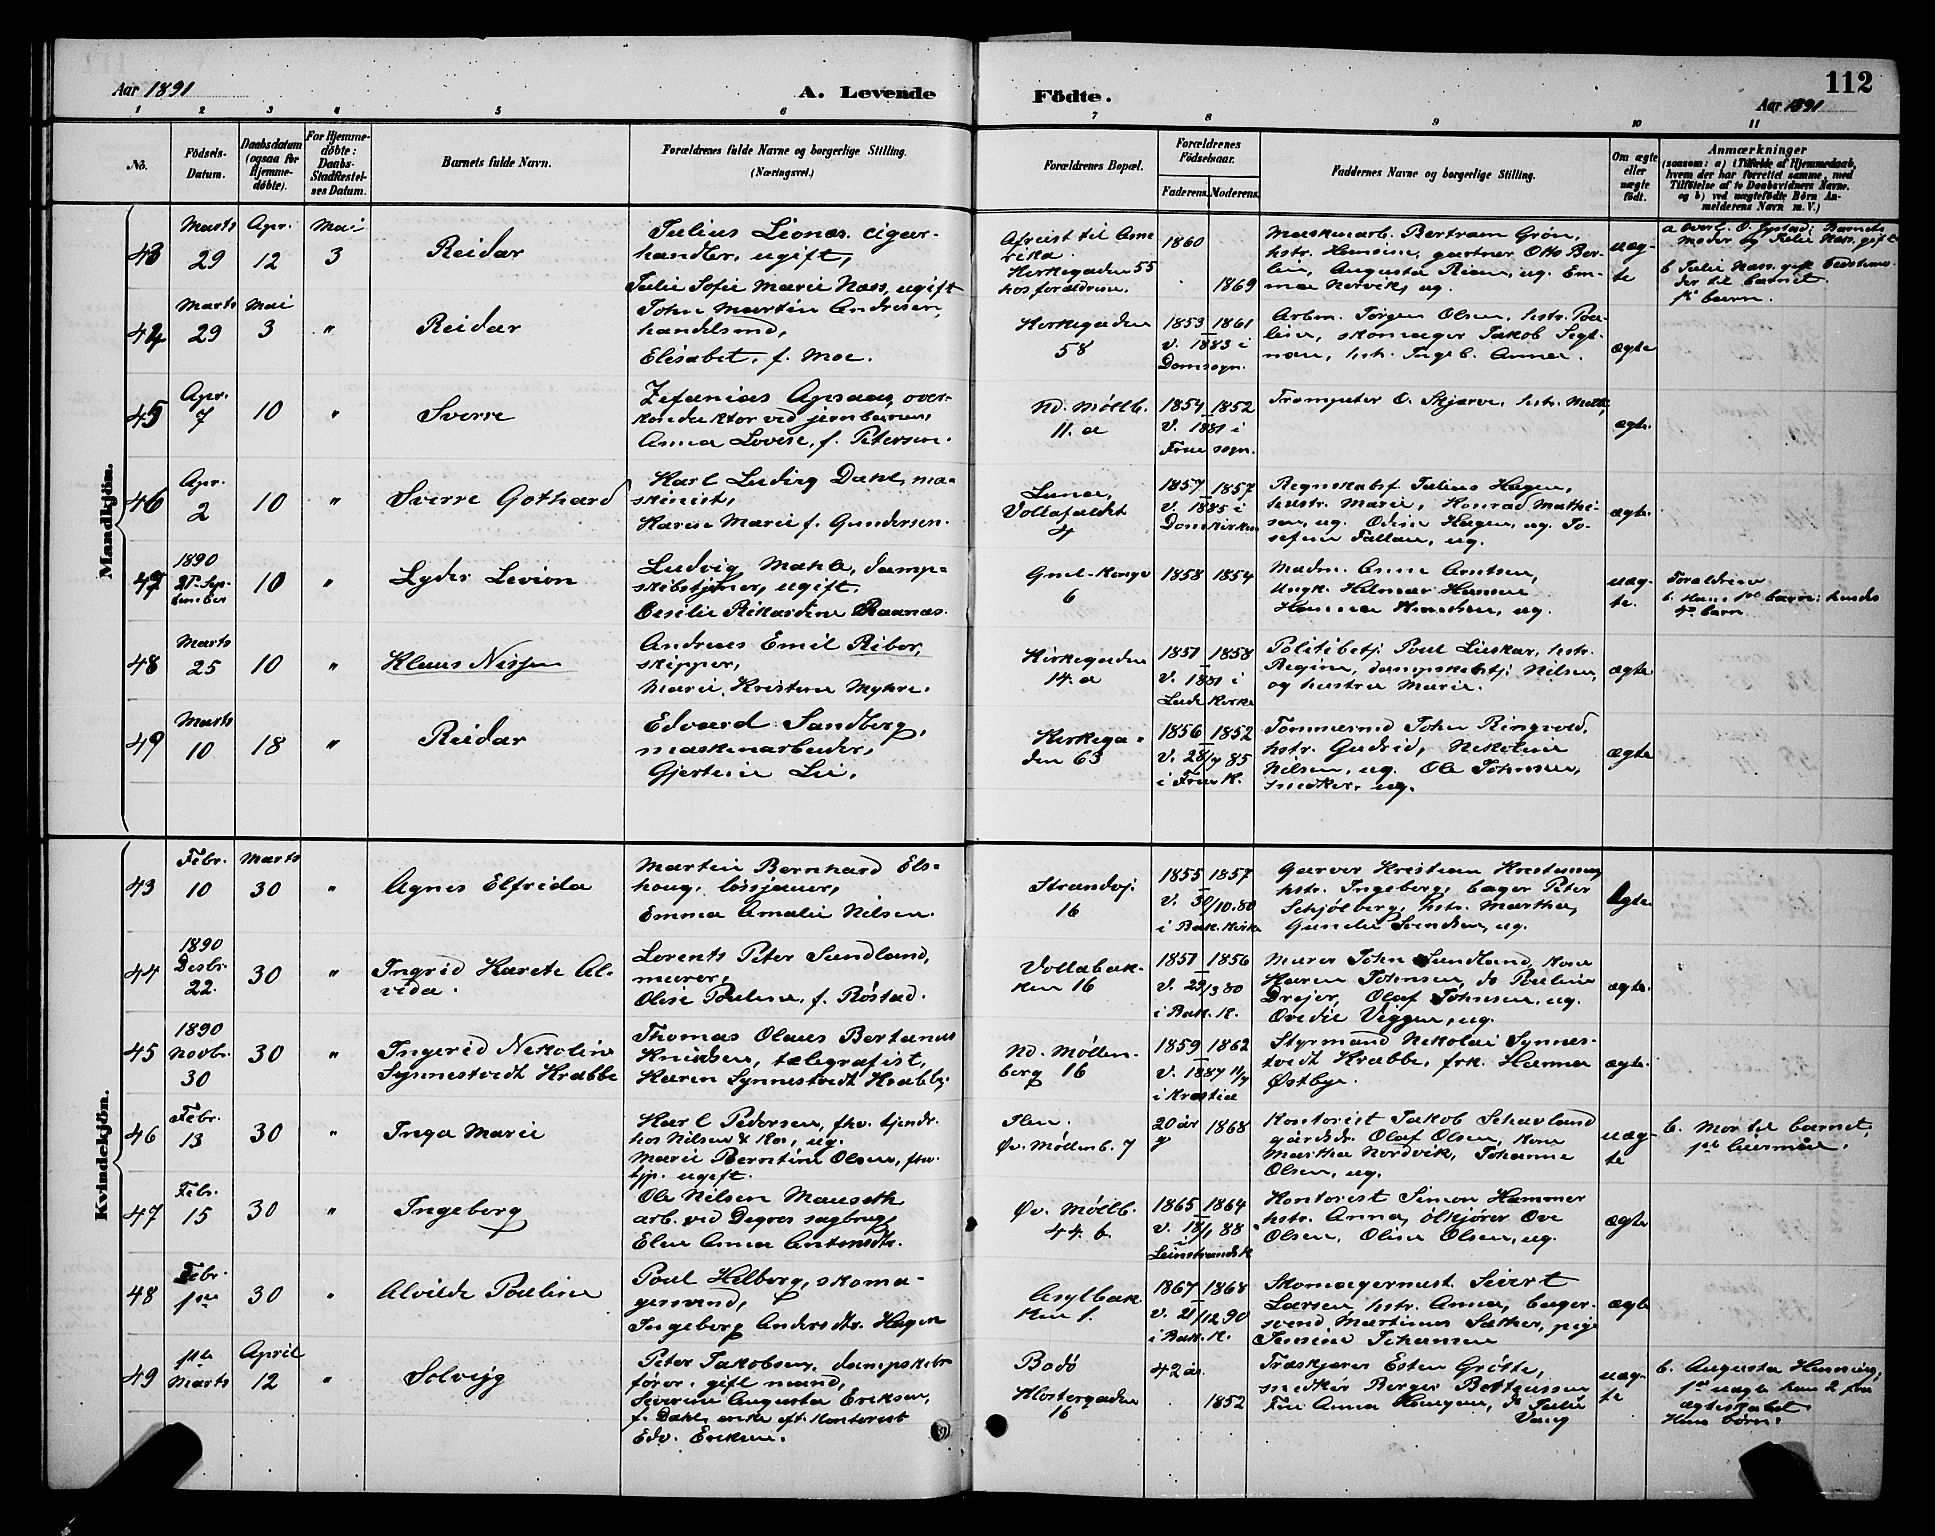 Aar 1891
A. Levende
Födte.
112
Aar 1891
1 2 3 4 5 6 7 8 9 10 11
No.
Födsels-
Datum.
Daabsdatum
(ogsaa for
Hjemme-
döbte).
For Hjemme-
döbte:
Daabs-
Stadfæstel-
ses Datum.
Barnets fulde Navn.
Forældrenes fulde Navne og borgerlige Stilling.
(Næringsvei.)
Forældrenes Bopæl.
Forældrenes
Födselsaar.
Faderens.
Moderens.
Faddernes Navne og borgerlige Stilling.
Om ægte
eller
uægte
födt.
Anmærkninger
(saasom: a) i Tilfælde af Hjemmedaab,
hvem der har forrettet samme, med
Tilföielse af to Daabsvidners Navne.
og b) ved uægtefödte Börn An-
melderens Navn m. V.)
Mandkjön.
43
Marts
29
Apr.
12
Mai
3
Reidar
Julius Lionæs, cigar-
handler, ugift,
Julie Sofie Marie Næss, ugift
Afreist til Ame
rika.
Kirkegaden 55
hos forældrene.
1860
1869
Maskinarb. Bertram Grön,
hstr. Hansine, gartner Otto Ber-
lin, Augusta Rian, ug. Em-
ma Nervik, ug.
uæg-
te
a Overl. O. Gystad: Barnets
Moder og Julie Næss, gift
b Julie Næss, gift
der til barnet.
1ste barn.
44
Marts
29
Mai
3
"
Reidar
John Martin Andresen,
handelsmd,
Elisabet, f. Moe.
Kirkegaden
58
1853 1861
V. 1883 i
Domsogn.
Arbm. Jörgen Olsen, hstr. Pau-
line, skomager Jakob Segt-
nan, hstr. Ingeb. Anna.
ægte
45
Apr.
7
10
"
Sverre
Zefanias Apsaas, over-
konduktor ved jernbanen,
Anna Lovise, f. Petersen.
Nd. Möllb.
11. a
1854 1852
V. 1881 i
Frue sogn.
Trompeter O. Skjarve, hstr.
ægte.
46
Apr.
2
10
"
Sverre Gothard
Karl Ludvig Dahl, ma-
skinist,
Karen Marie f. Gundersen.
Vollafaldet
4
1857 1857
V. 1885 i
Domkirken
Regnskabsf. Julius Hagen,
hustr. Marie, Konrad Mathi-
sen, ug. Odin Hagen, ug. Jo-
sefine Fallan, ug.
ægte.
47
1890
27 Sep-
tember
10
"
Lyder Levion
Ludvig Makle, damp-
skibstjener, ugift,
Cesilie Rikardine Raanæs.
6
1858 1854
Madm. Anne Arntsen,
Ungk. Hilmar Hansen
Hanna Knudsen, ug.
uæg-
te.
Forældrene
b. Hans 1ste barn: hendes
4de barn
48
Marts
25
10
"
Klaus Nissen
Andreas Emil Riber,
skipper,
Marie Kristine Myhre.
Kirkegaden
14. a
1851 1858
V. 1881 i
Lade Kirke
Politibetj. Poul Lieskar, hstr.
Regine, dampskibstj. Nilsen,
og hustru Marie.
ægte
49
Marts
10
18
"
Reidar
Edvard Sandberg,
maskinarbeider,
Gjertine Lie.
Kirkega-
den 63
1856 1852
V. 28/9 85
i Frue K.
Tömmermd John Ringvold,
hstr. Gudrid, Nikoline
Nilsen, ug. Ole Johnsen,
snedker, ug.
ægte
Kvindekjön.
43
Febr.
10
Marts
30
"
Agnes Elfrida
Martin Bernhard Els-
houg, lösjauer,
Emma Amalie Nilsen.
Strandvj.
16
1855 1857
V. 3/10.80
i Bak. Kirke
Garver Kristian Kristensen,
hstr. Ingeborg, bager Peter
Schjölberg, hstr. Martha,
Gunda Svendsen, ug.
ægte
44
1890
Desbr.
22.
30
"
Ingrid Karete Al-
vida.
Lorents Peter Sundland,
murer,
Olise Pauline, f. Röstad.
Vollabak-
ken 16
1851 1856
V. 29/3 80
i Bak. K.
Murer John Sundland, kone
Karen Johnsen, do Pauline
Drejer, Olaf Johnsen, ug.
Ovedie Viggen, ug.
ægte.
45
1890
Novbr.
30
30
"
Ingerid Nekoline
Synnestvedt Krabbe
Thomas Olaus Bertanus
Knudsen, telegrafist,
Karen Synnestvedt Krabbe,
Nd. Möllen-
berg 16
1859 1862
V. 1887 11/7
i Kristia
Styrmand Nikolai Synnes-
tvedt Krabbe, frk. Hanna
Östbye.
ægte.
46
Febr.
13
30
"
Inga Marie
Karl Pedersen, fhv. tjendr.
hos Nilsen & Kos, ug.
Marie Berntine Olsen, fhv.
tjp. ugift.
Ilen.
Öv. Möllenb. 7
20 år
g
1868
Kontorist Jakob Schavland
gårdsdr. Olaf Olsen, kone
Martha Nordvik, Johanne
Olsen, ug.
uæg-
te
b. Mor til barnet,
1ste leiermål.
47
Febr.
15
30
"
Ingeborg
Ole Nilsen Mauseth
arb. ved Degres sagbrug,
Elen Anna Antonsdtr.
Öv. Möllb.
44. b.
1865 1864
V. 18/1 88
i
Leinstrands K
Kontorist Simon Hammer
hstr. Anna, ölkjörer Ove
Olsen, Olise Olsen, ug.
ægte
48
Febr.
1ste
30
"
Alvilde Pauline
Poul Hilberg, skoma-
gersvend,
Ingeborg Andersdtr. Hagen
Asylbak
ken 1.
1867 1868
V. 21/12 90
i Bak. K.
Skomagermest. Sivert
Larsen, hstr. Anna, bager-
svend Martinus Sæther, pige
Jensine Johansen
ægte
49
1ste
Marts
April
12
"
Solveig
Peter Jakobsen, dampskibs
förer, gift mand,
Severine Augusta Eriksen,
f. Dahl, enke eft. Kontorist
Edv. Eriksen.
Bodö
Klostergaden
16
42 år.
1852
Træskjærer Esten Grötte,
snedker Berger Bottensen
Frk Anna Haugen, do Julie
Vang
uæg-
te
b. Augusta Henning,
1ste uægte, hun 2 fra
ægteskabet.
Hans börn.